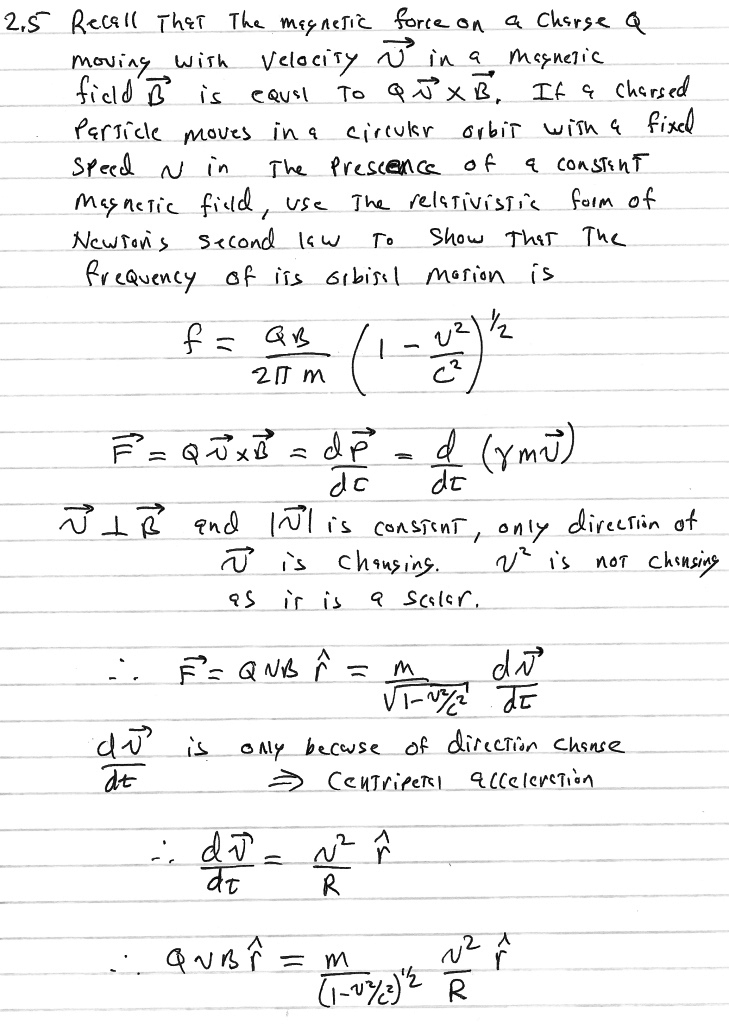 2.5 Recall That The magnetic force on a Charge Q
moving with Velocity v⃗ in a magnetic
field B⃗ is equal To Q v⃗ × B⃗. If a charged
Particle moves in a circular orbit with a fixed
Speed v in The Prescence of a constant
Magnetic field, use The relativistic form of
Newton's second law To Show That The
frequency of its orbital motion is
f = QB/(2π m) (1 - v²/c²)^1/2
F⃗ = Q v⃗ × B⃗ = dP⃗/dt = d/dt (γmv⃗)
v⃗ ⊥ B⃗ and |v⃗| is constant, only direction of
v⃗ is changing. v² is not changing
as it is a scalar.
∴ F⃗ = QvB r̂ = m/√(1-v²/c²) dv⃗/dt
dv⃗/dt is only becuse of direction change
⇒ Centripetal acceleration
∴ dv⃗/dt = v²/R r̂
∴ QvB r̂ = m/(1-v²/c²)^1/2 v²/R r̂